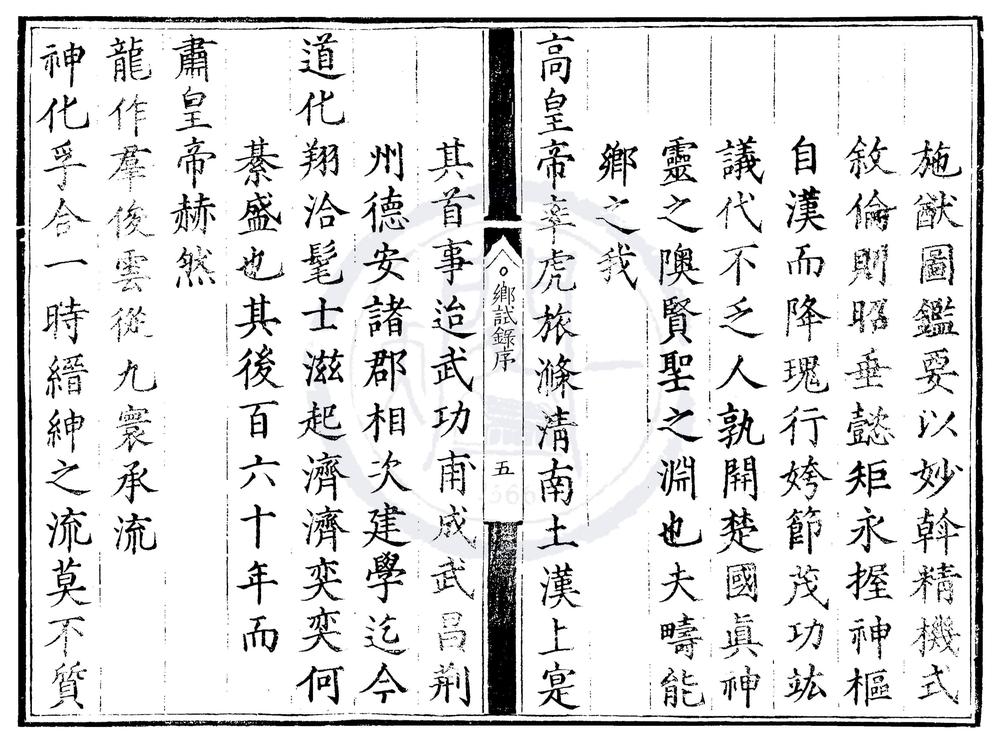 施猷圖鑑要以妙斡精機式
敘倫則昭垂懿矩永握神樞
自漢而降瑰行姱節茂功竑
議代不乏人孰開楚國眞神
靈之隩賢聖之淵也夫疇能
鄉之我
高皇帝率虎旅滌清南土漢上寔
鄉試錄序
五
其首事迨武功甫成武昌荆
州德安諸郡相次建學迄今
道化翔洽髦士滋起濟濟奕奕何
綦盛也其後百六十年而
肅皇帝赫然
龍作羣俊雲從九寰承流
神化孚合一時縉紳之流莫不質